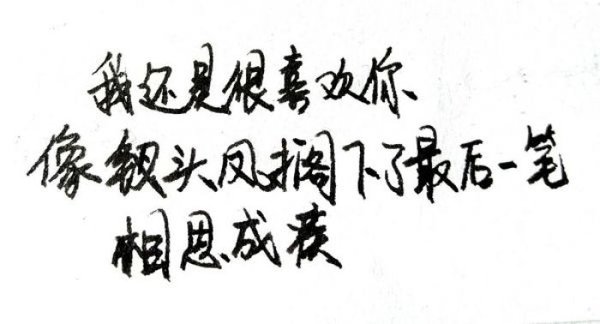 我还是很喜欢你、
像钗头凤搁下了最后一笔
相思成疾